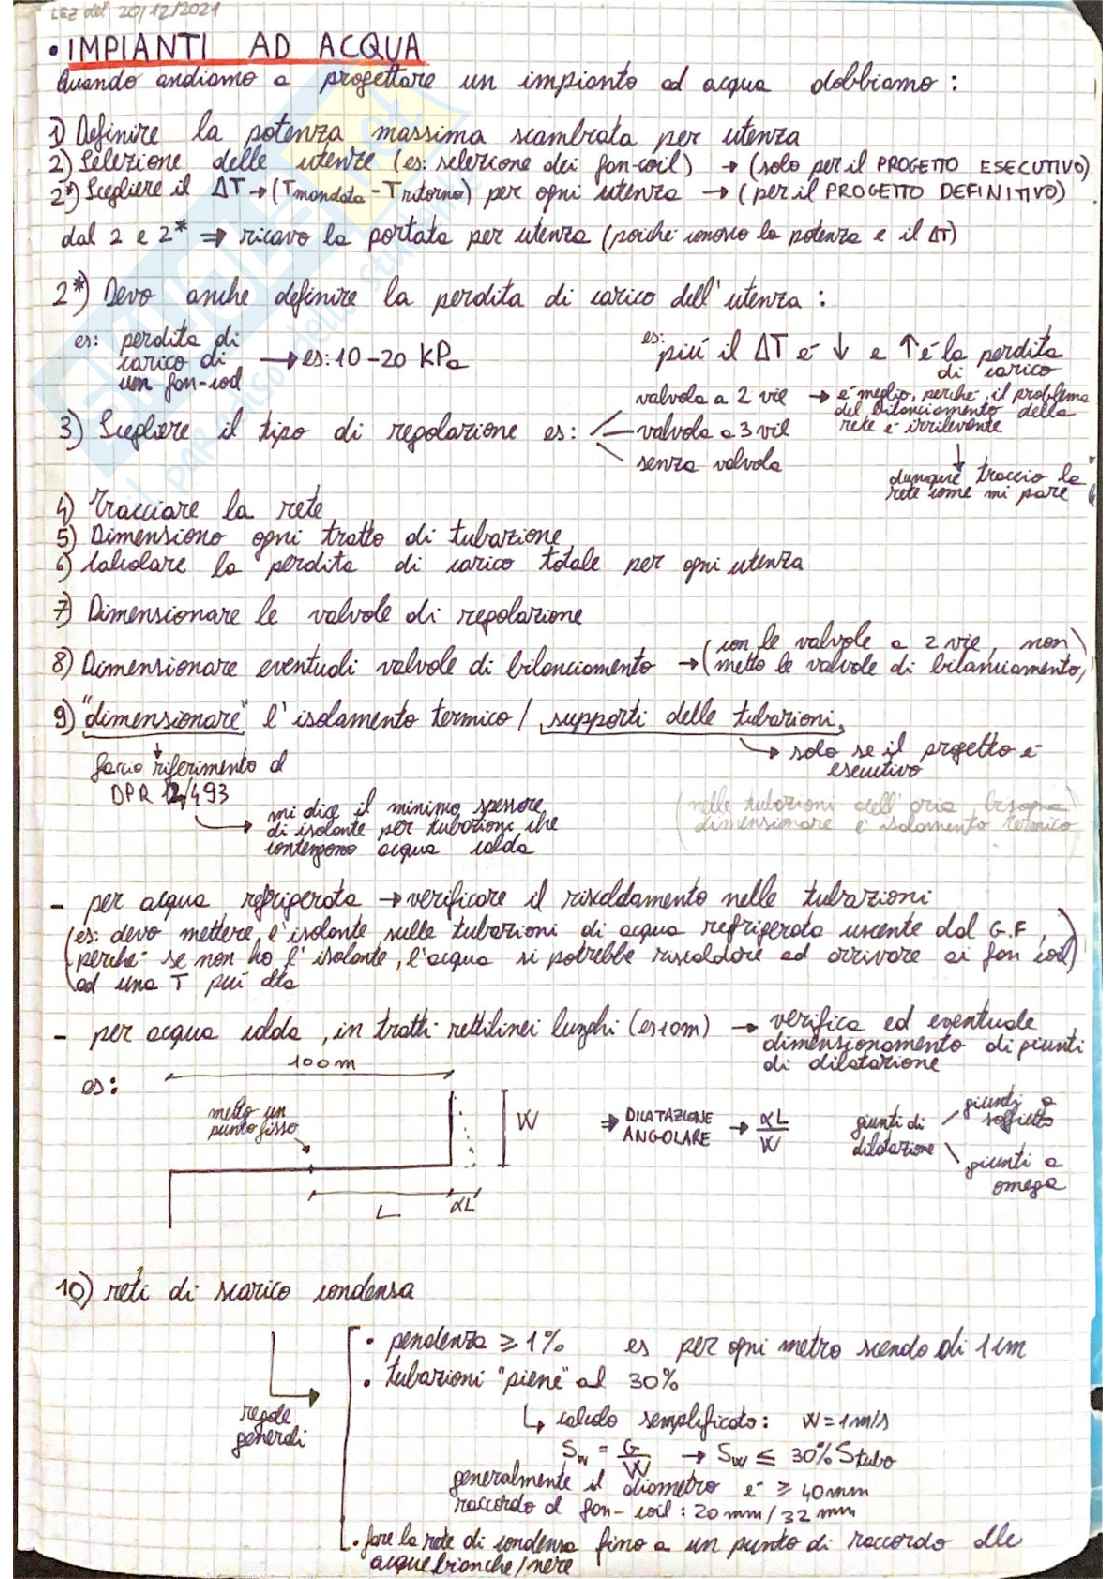 LEZ del 20/12/2021
• IMPIANTI AD ACQUA
Quando andiamo a progettare un impianto ad acqua dobbiamo:
1) Definire la potenza massima scambiata per utenza
2) Selezione delle utenze (es: selezione dei fan-coil) → (solo per il PROGETTO ESECUTIVO)
2*) Scegliere il ΔT → (Tmandata - Tritorno) per ogni utenza → (per il PROGETTO DEFINITIVO)
dal 2 e 2* ⇒ ricavo la portata per utenza (poiché conosco la potenza e il ΔT)
2*) Devo anche definire la perdita di carico dell'utenza:
es: perdita di
carico di
un fan-coil
→ es: 10-20 kPa
es: più il ΔT è ↓ e ↑ è la perdita
di carico
3) Scegliere il tipo di regolazione es:
valvola a 2 vie → è meglio, perché il problema
del bilanciamento della
rete è irrilevante
valvola a 3 vie
senza valvola
↓
dunque traccio la
rete come mi pare
4) Tracciare la rete
5) Dimensiono ogni tratto di tubazione
6) Calcolare la perdita di carico totale per ogni utenza
7) Dimensionare le valvole di regolazione
8) Dimensionare eventuali valvole di bilanciamento → (con le valvole a 2 vie, non
metto le valvole di bilanciamento)
9) "dimensionare" l'isolamento termico / supporti delle tubazioni
↳ solo se il progetto è
esecutivo
faccio riferimento al
DPR 12/493
→ mi dice il minimo spessore
di isolante per tubazione che
contengono acqua calda
(nelle tubazioni dell'aria bisogna
dimensionare l'isolamento termico)
- per acqua refrigerata → verificare il riscaldamento nelle tubazioni
(es: devo mettere l'isolante sulle tubazioni di acqua refrigerata uscente dal G.F,
perché se non ho l'isolante, l'acqua si potrebbe riscaldare ed arrivare ai fan coil
ad una T più alta)
- per acqua calda, in tratti rettilinei lunghi (es 10m) → verifica ed eventuale
dimensionamento di giunti
di dilatazione
es:
100m
metto un
punto fisso
W
L
αL
⇒ DILATAZIONE
ANGOLARE → αL/W
giunti di
dilatazione
giunti a
soffietto
giunti a
omega
10) reti di scarico condensa
regole
generali
• pendenza ≥ 1% es per ogni metro scendo di 1 cm
• tubazioni "piene" al 30%
↳ calcolo semplificato: W=1m/s
Sw = G/W → Sw ≤ 30% Stubo
generalmente il diametro è ≥ 40mm
raccordo al fan-coil: 20 mm/32 mm
• fare la rete di condensa fino a un punto di raccordo alle
acque bianche/nere